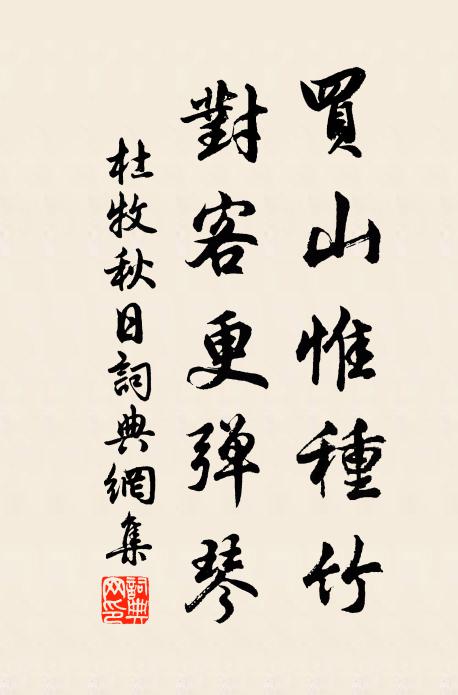 買山惟種竹
對客更弹琴
杜牧秋日詞典網集
詞典網印